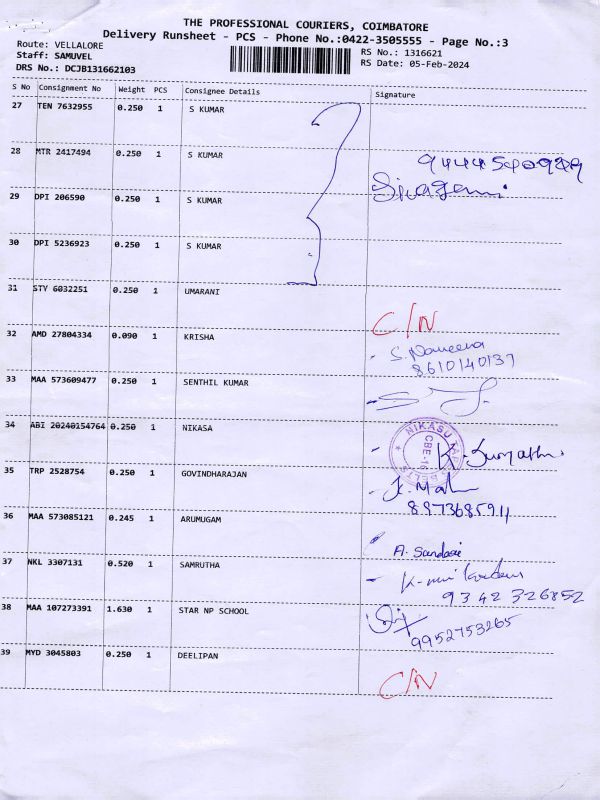 THE PROFESSIONAL COURIERS, COIMBATORE
Delivery Runsheet - PCS - Phone No.:0422-3505555 - Page No.:3
Route: VELLALORE
Staff: SAMUVEL
DRS No.: DCJB131662103
RS No.: 1316621
RS Date: 05-Feb-2024
S No Consignment No Weight PCS Consignee Details Signature
27 TEN 7632955 0.250 1 S KUMAR
28 MTR 2417494 0.250 1 S KUMAR
Sivagami
29 DPI 206590 0.250 1 S KUMAR
30 DPI 5236923 0.250 1 S KUMAR
31 STY 6032251 0.250 1 UMARANI C/N
32 AMD 27804334 0.090 1 KRISHA S. Naveena
8610140137
33 MAA 573609477 0.250 1 SENTHIL KUMAR
34 ABI 20240154764 0.250 1 NIKASA
NIKASU
CBE-16
BELTS
35 TRP 2528754 0.250 1 GOVINDHARAJAN
8973685911
36 MAA 573085121 0.245 1 ARUMUGAM A. Sundari
37 NKL 3307131 0.520 1 SAMRUTHA
9342 326852
38 MAA 107273391 1.630 1 STAR NP SCHOOL
9952753265
39 MYD 3045803 0.250 1 DEELIPAN C/N